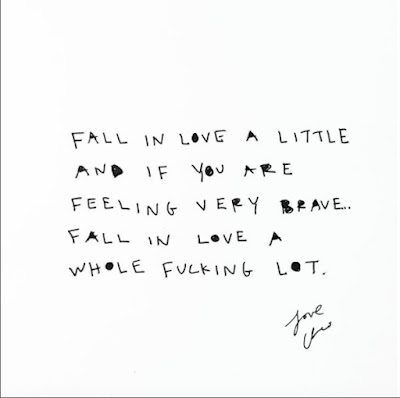 FALL IN LOVE A LITTLE
AND IF YOU ARE
FEELING VERY BRAVE..
FALL IN LOVE A
WHOLE FUCKING LOT.
love